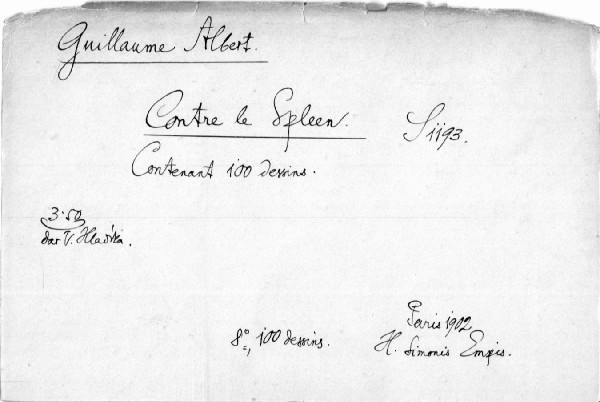 Guillaume Albert.
Contre le Spleen.
S 1193.
Contenant 100 dessins.
3·50
dar V. Hlavsa.
8°, 100 dessins.
Paris 1902
H. Simonis Empis.